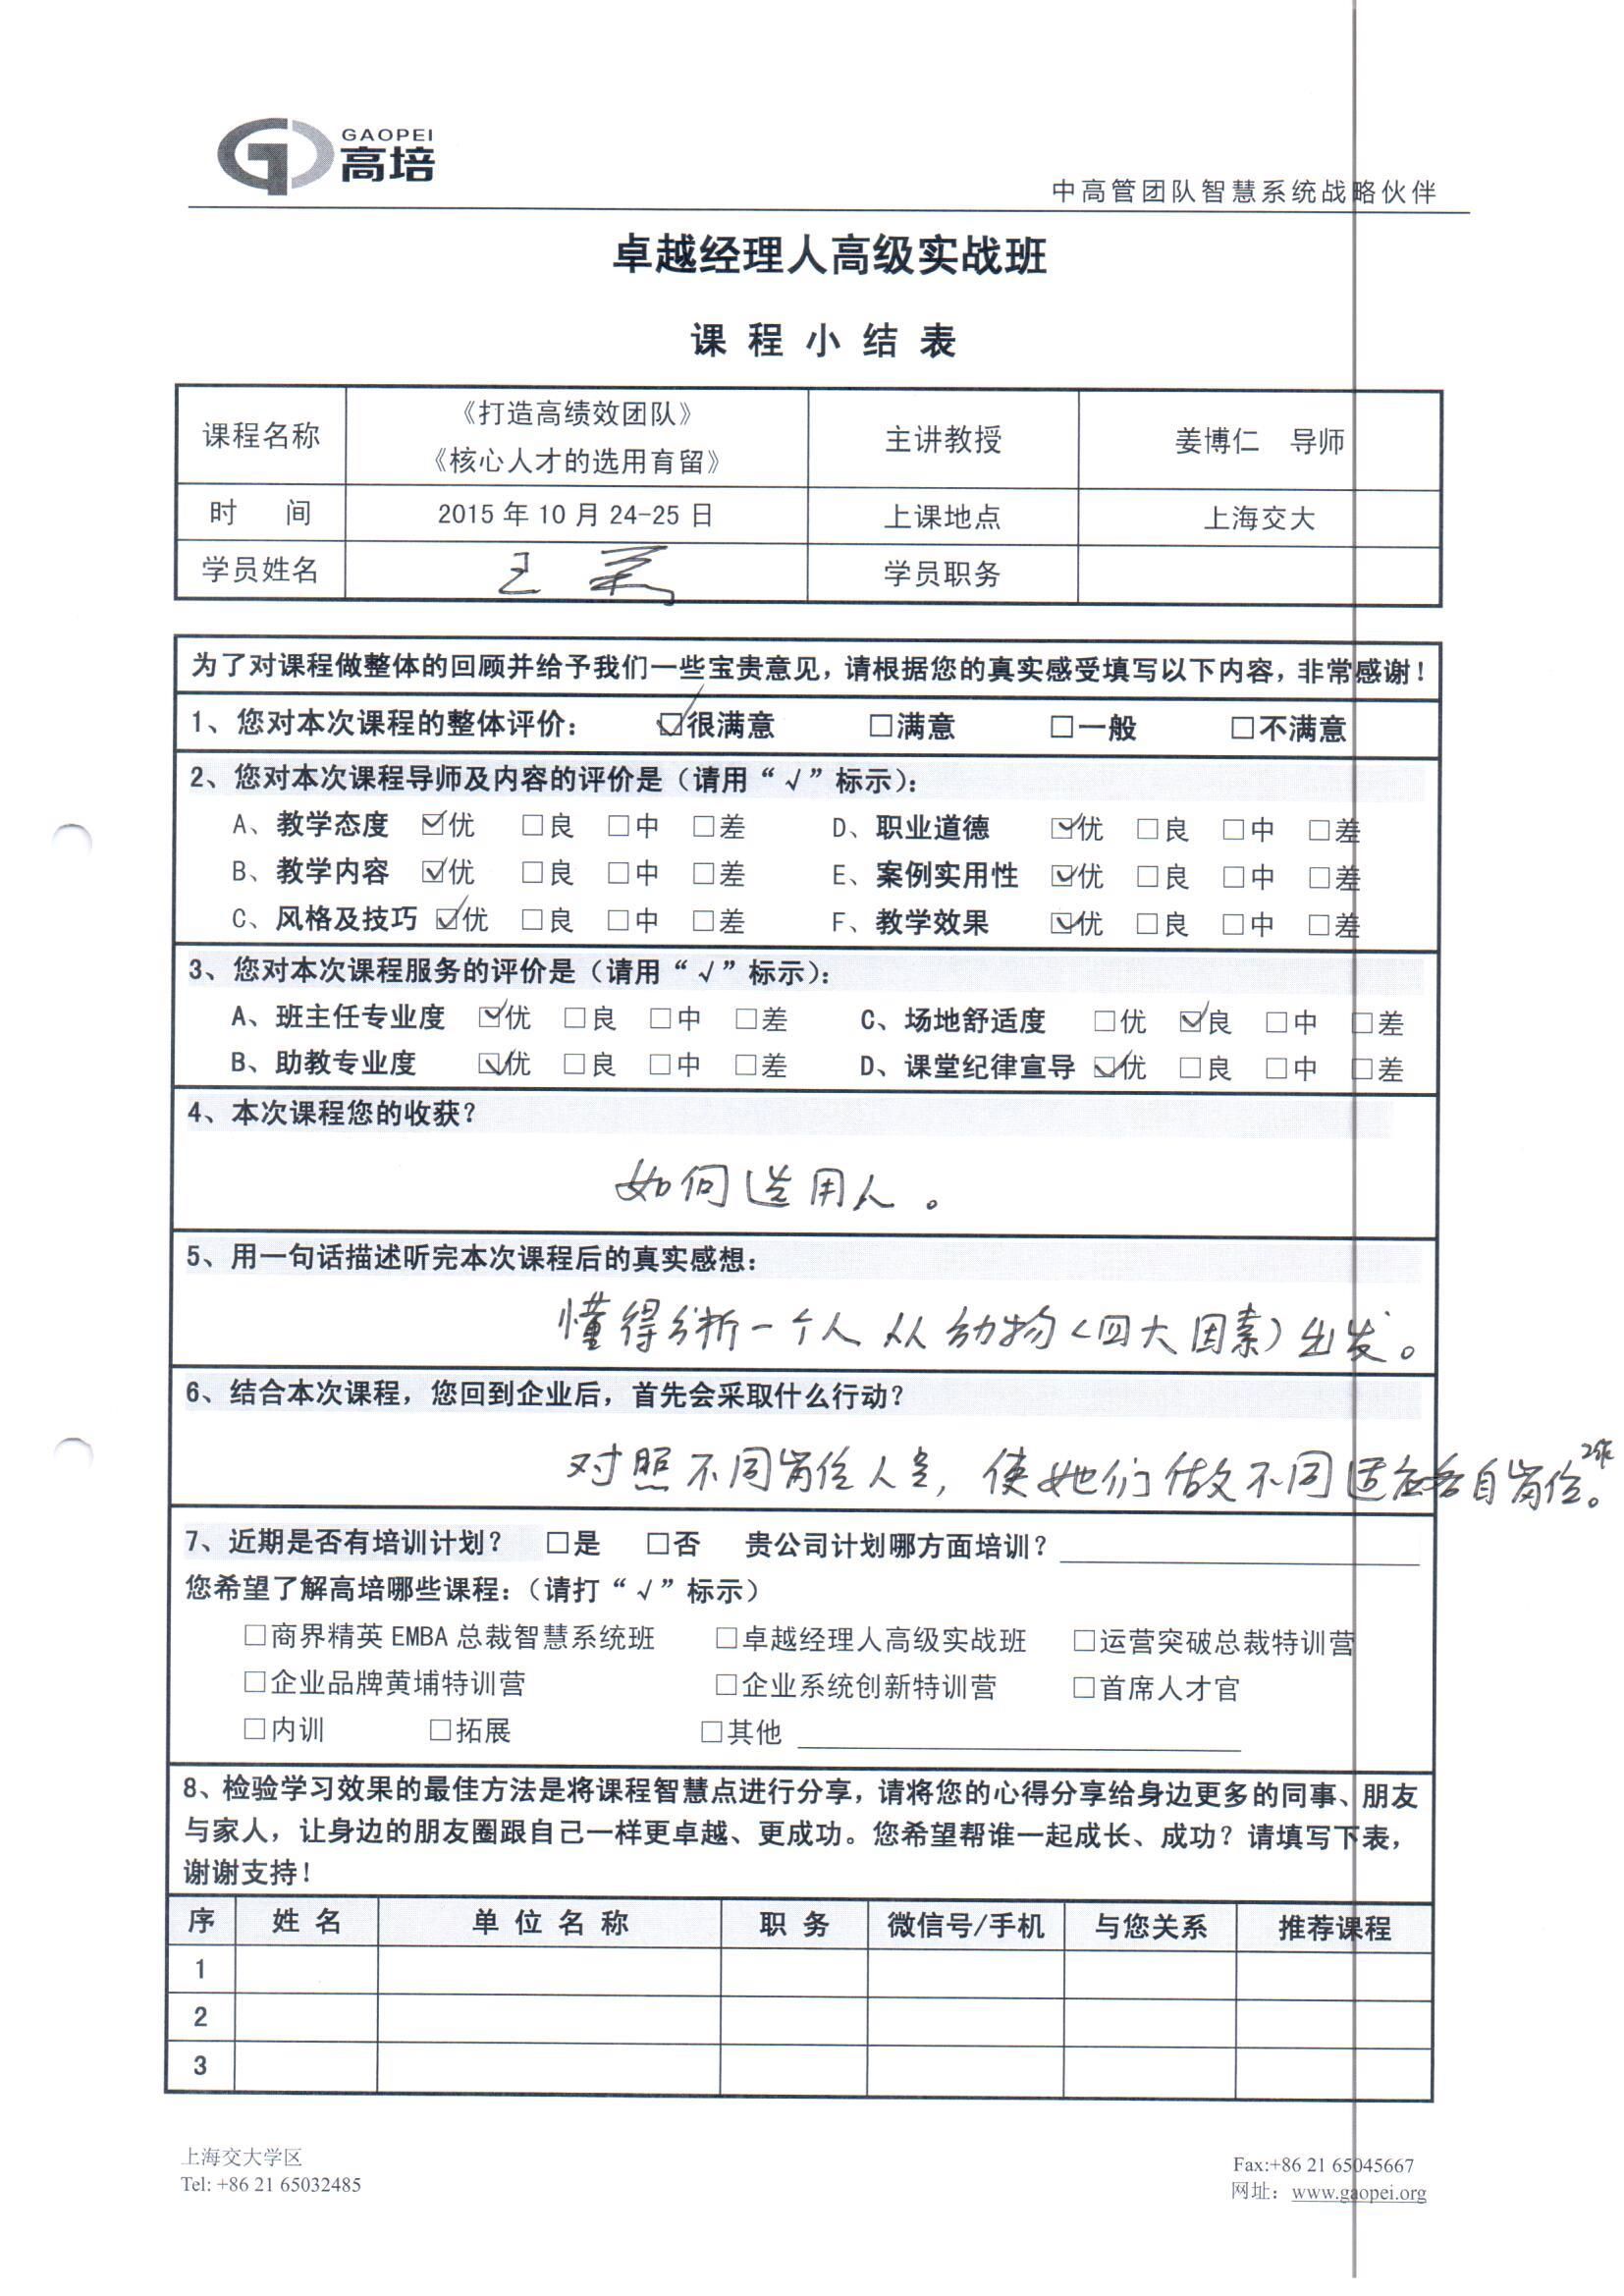 GAOPEI
高培
中高管团队智慧系统战略伙伴
卓越经理人高级实战班
课程小结表
课程名称 《打造高绩效团队》 《核心人才的选用育留》 主讲教授 姜博仁 导师
时 间 2015年10月24-25日 上课地点 上海交大
学员姓名 王 学员职务
为了对课程做整体的回顾并给予我们一些宝贵意见，请根据您的真实感受填写以下内容，非常感谢！
1、您对本次课程的整体评价： ☑很满意 □满意 □一般 □不满意
2、您对本次课程导师及内容的评价是（请用“√”标示）：
A、教学态度 ☑优 □良 □中 □差 D、职业道德 ☑优 □良 □中 □差
B、教学内容 ☑优 □良 □中 □差 E、案例实用性 ☑优 □良 □中 □差
C、风格及技巧 ☑优 □良 □中 □差 F、教学效果 ☑优 □良 □中 □差
3、您对本次课程服务的评价是（请用“√”标示）：
A、班主任专业度 ☑优 □良 □中 □差 C、场地舒适度 □优 ☑良 □中 □差
B、助教专业度 ☑优 □良 □中 □差 D、课堂纪律宣导 ☑优 □良 □中 □差
4、本次课程您的收获？
如何选用人。
5、用一句话描述听完本次课程后的真实感想：
懂得分析一个人从动物（四大因素）出发。
6、结合本次课程，您回到企业后，首先会采取什么行动？
对照不同岗位人员，使她们做不同适应各自岗位工作。
7、近期是否有培训计划？ □是 □否 贵公司计划哪方面培训？
您希望了解高培哪些课程：（请打“√”标示）
□商界精英EMBA总裁智慧系统班 □卓越经理人高级实战班 □运营突破总裁特训营
□企业品牌黄埔特训营 □企业系统创新特训营 □首席人才官
□内训 □拓展 □其他
8、检验学习效果的最佳方法是将课程智慧点进行分享，请将您的心得分享给身边更多的同事、朋友
与家人，让身边的朋友圈跟自己一样更卓越、更成功。您希望帮谁一起成长、成功？请填写下表，
谢谢支持！
序 姓名 单位名称 职务 微信号/手机 与您关系 推荐课程
1
2
3
上海交大学区
Tel: +86 21 65032485
Fax:+86 21 65045667
网址：www.gaopei.org